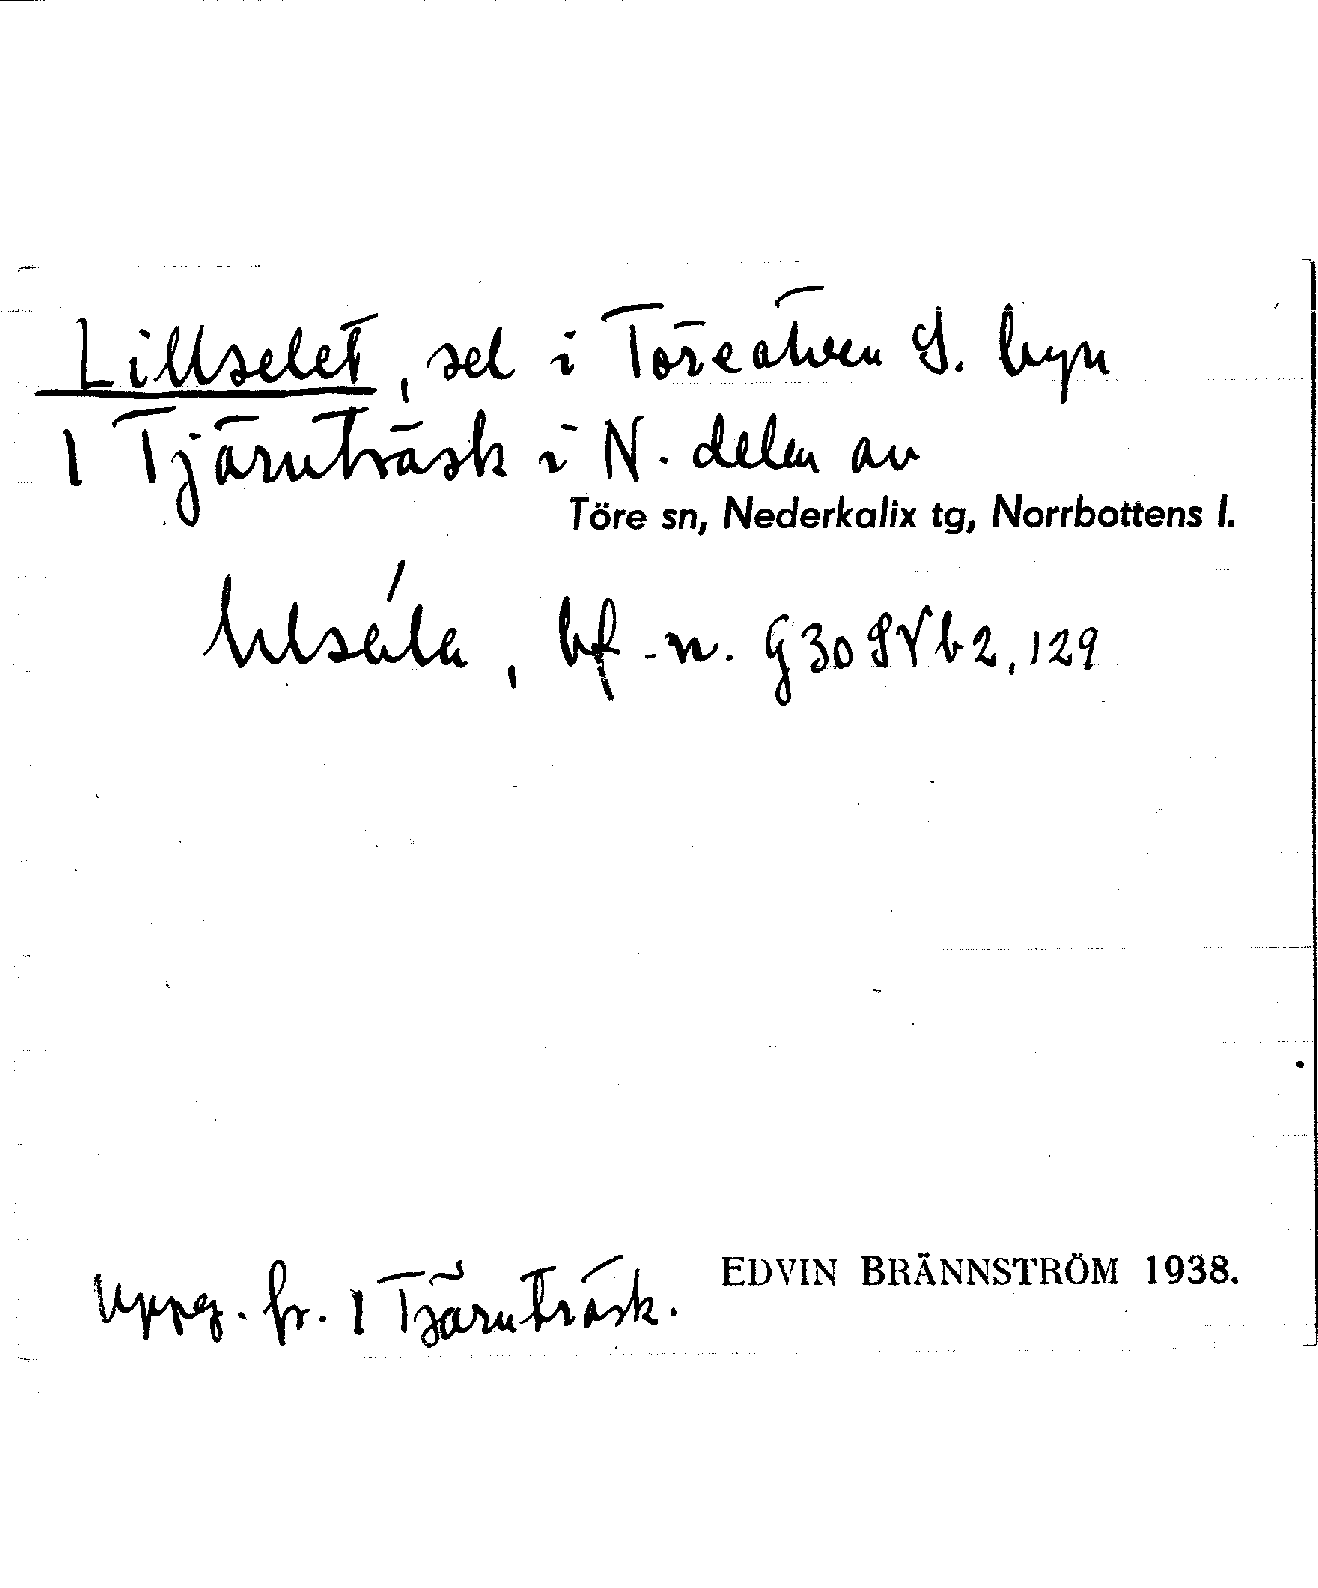 Lillselet, sel i Töreälven S. byn
1 Tjärnträsk i N. delen av
Töre sn, Nederkalix tg, Norrbottens l.
bf. -n. G30 SV b2, 129
Uppg. fr. 1 Tjärnträsk.
EDVIN BRÄNNSTRÖM 1938.